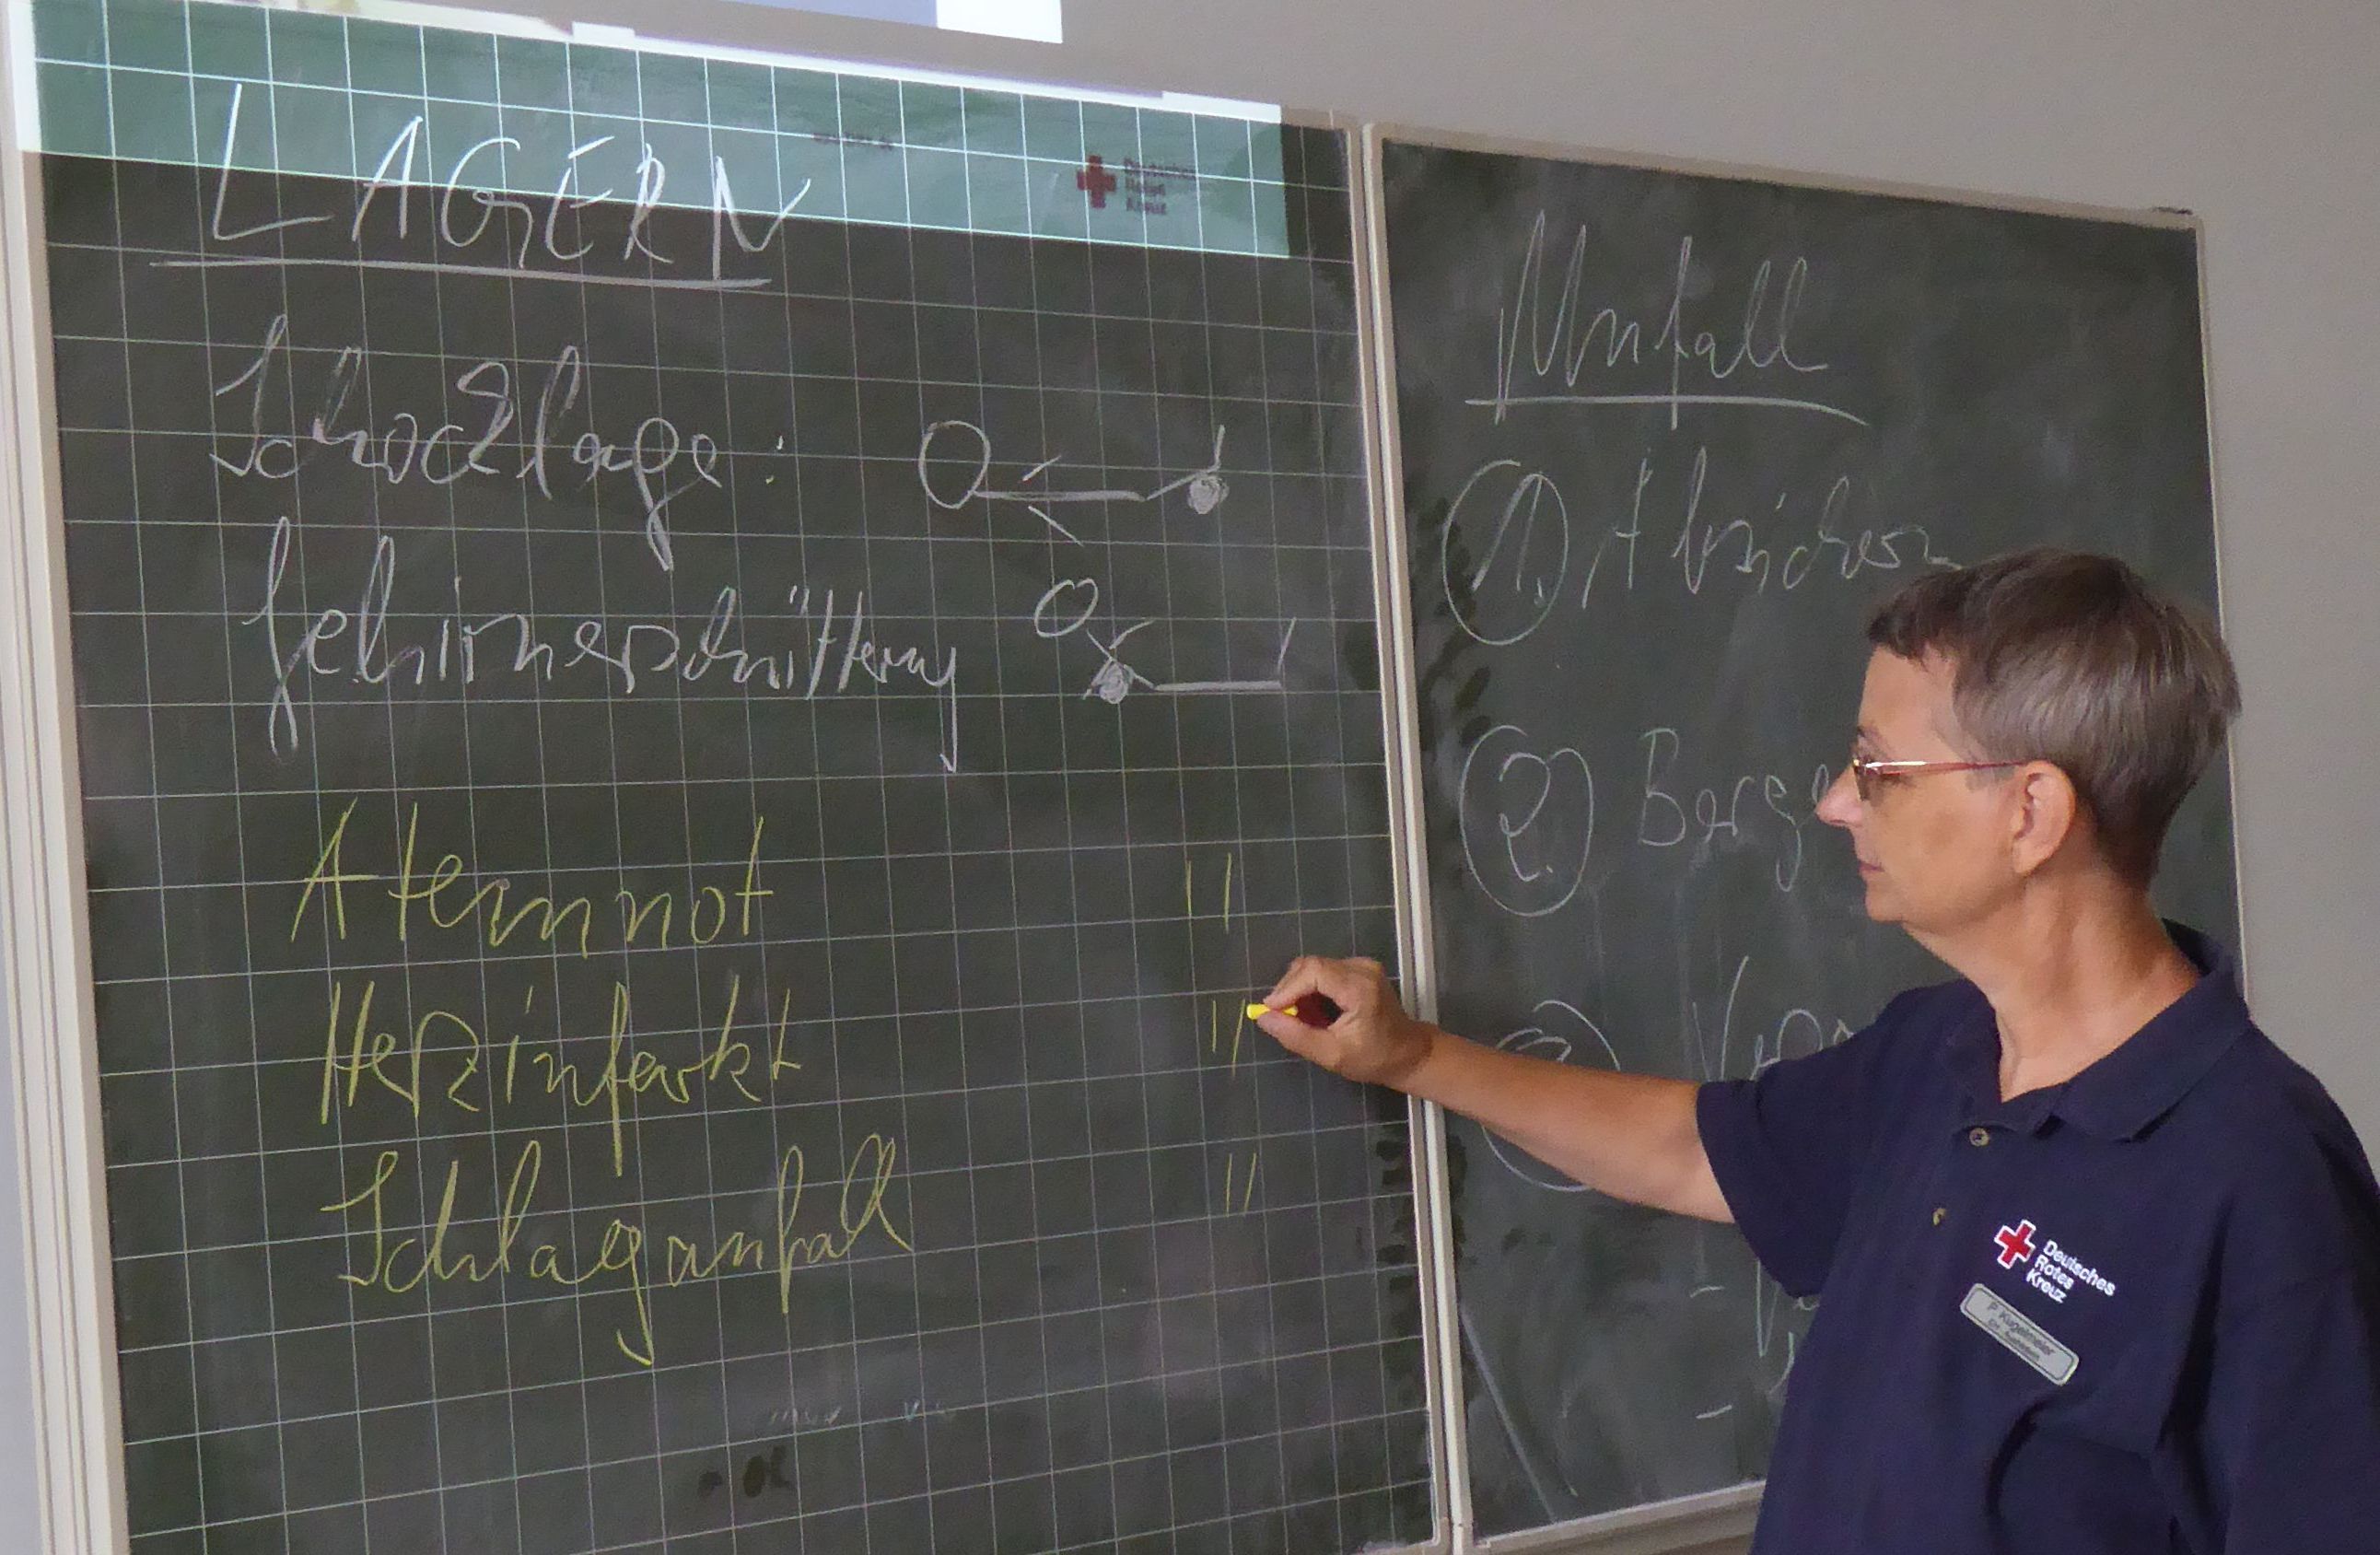 LAGERN
Deutsches
Rotes
Kreuz
Schocklage:
Gehirnerschütterung
Atemnot "
Herzinfarkt "
Schlaganfall "
Unfall
1. Absichern
2. Berge
3.
Deutsches
Rotes
Kreuz
P. Kugelmeier